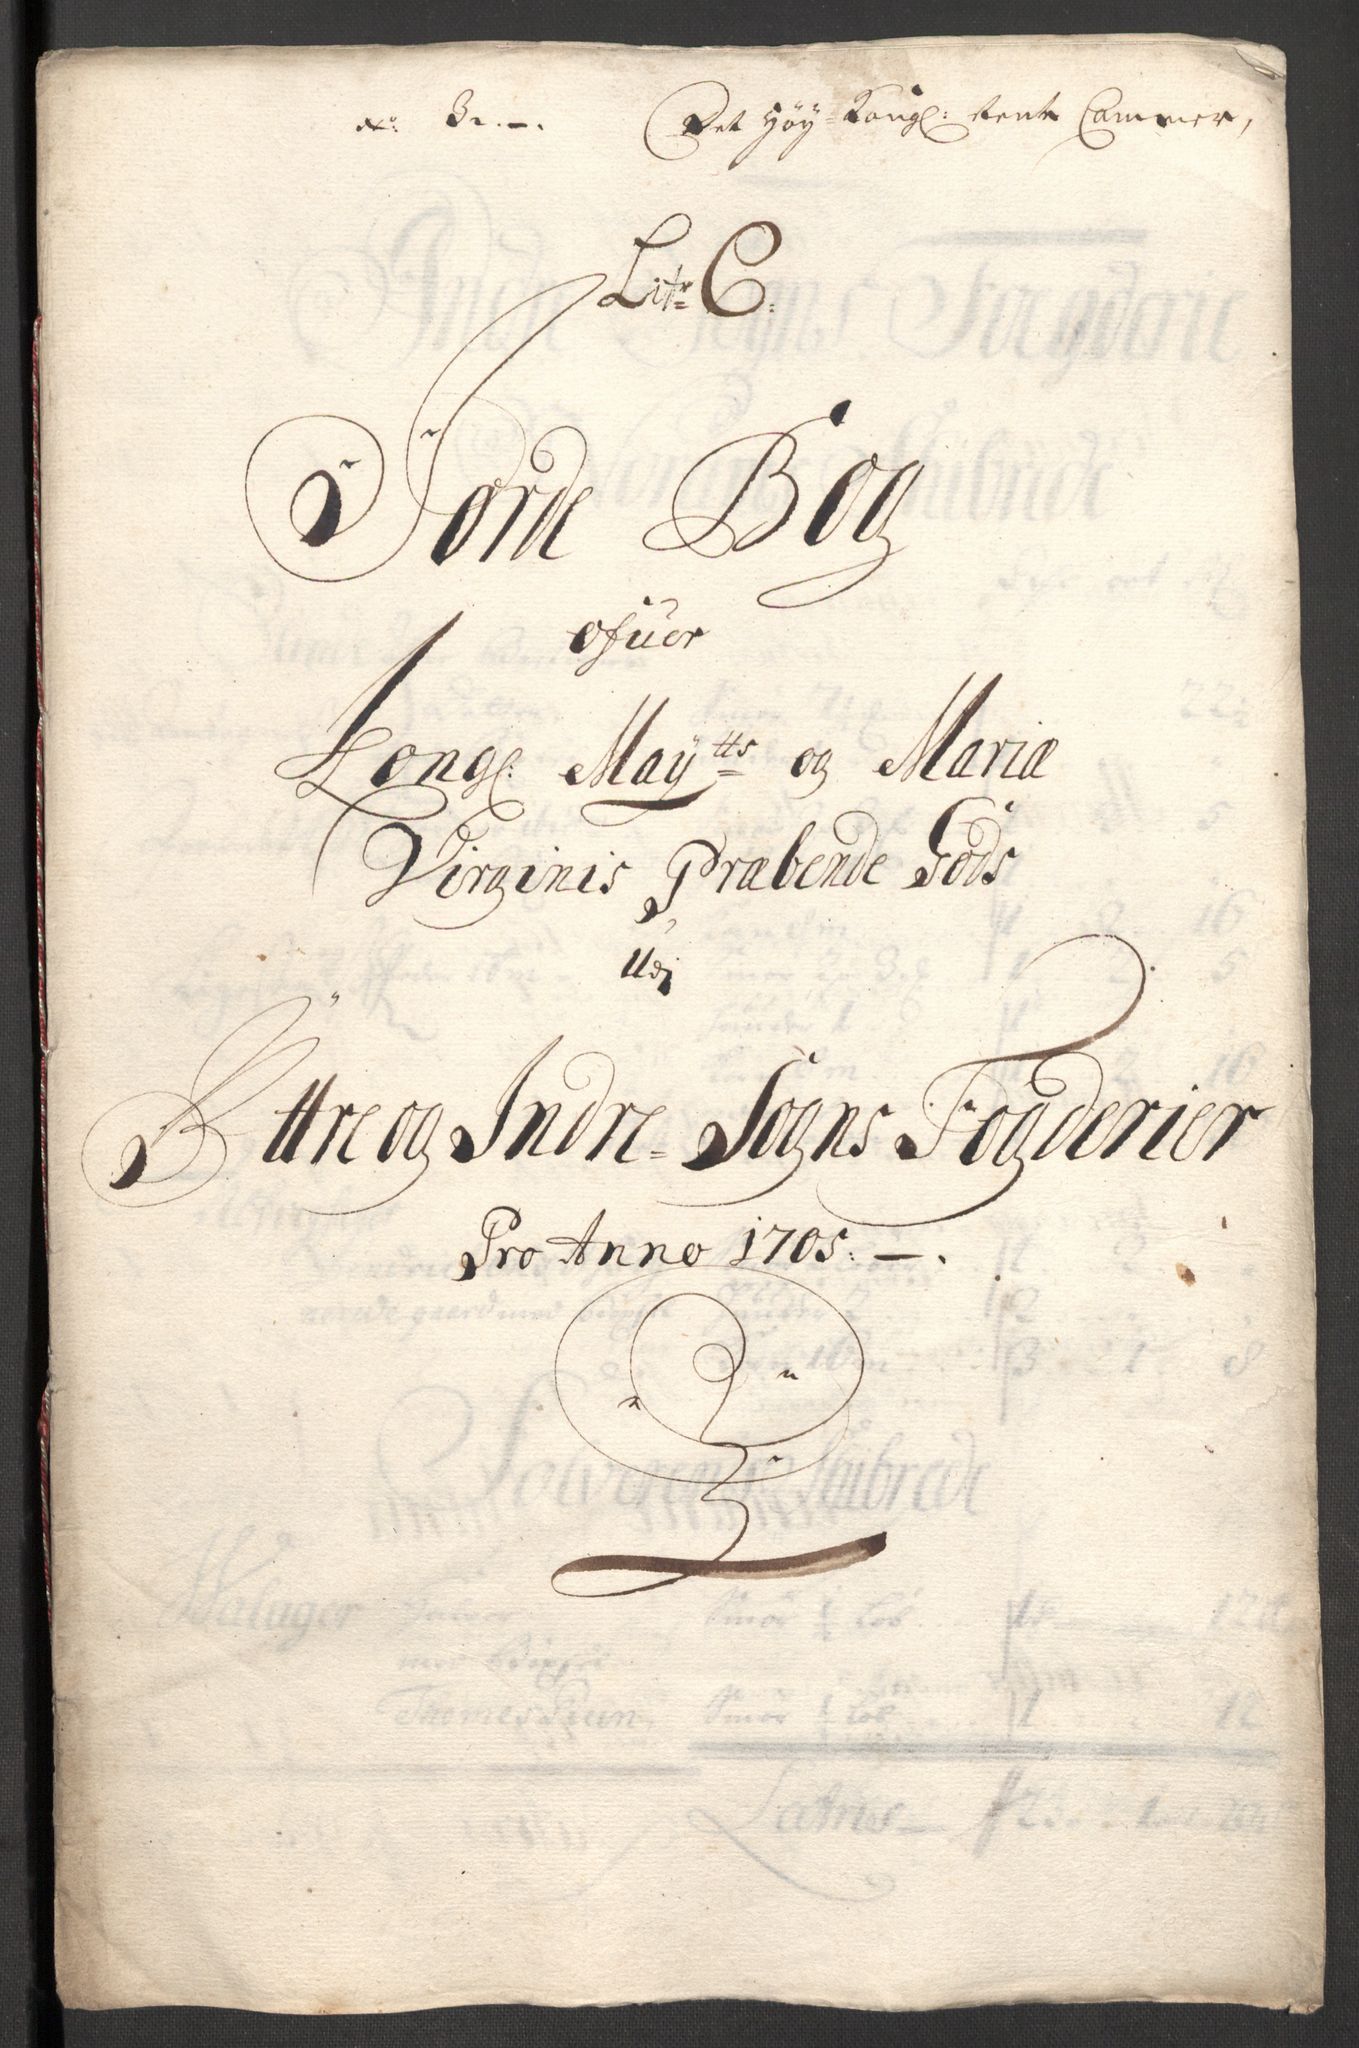 No: 3.
Det Höÿ Kongl: Rente Cammer,
Litr C:
Jorde Bog
ofuer
Kongl: Maÿtts og Mariæ
Virginis Præbende Gods
Udj
Ÿttre og Indre Sogns Fogderier
Pro Anno 1705.